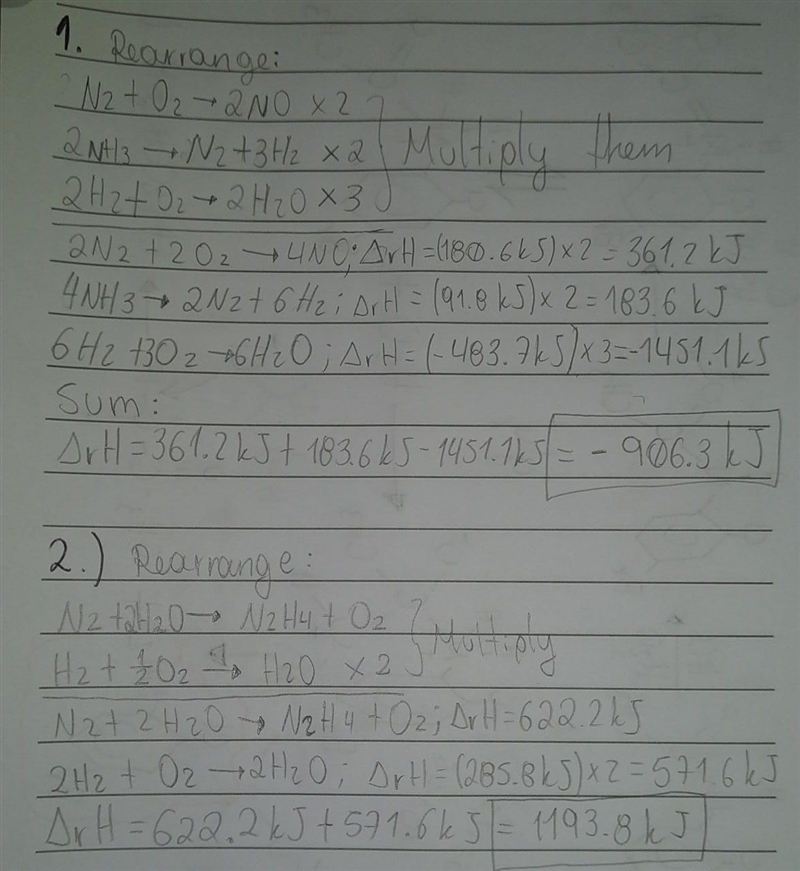 1. Rearrange:
N2 + O2 → 2NO × 2
2NH3 → N2 + 3H2 × 2 } Multiply them
2H2 + O2 → 2H2O × 3
2N2 + 2O2 → 4NO; ΔrH = (180.6kJ) × 2 = 361.2 kJ
4NH3 → 2N2 + 6H2; ΔrH = (91.8 kJ) × 2 = 183.6 kJ
6H2 + 3O2 → 6H2O; ΔrH = (-483.7kJ) × 3 = -1451.1kJ
Sum:
ΔrH = 361.2 kJ + 183.6 kJ - 1451.1 kJ = - 906.3 kJ
2.) Rearrange:
N2 + 2H2O → N2H4 + O2 } Multiply
H2 + 1/2 O2 → H2O × 2
N2 + 2H2O → N2H4 + O2; ΔrH = 622.2kJ
2H2 + O2 → 2H2O; ΔrH = (285.8kJ) × 2 = 571.6 kJ
ΔrH = 622.2 kJ + 571.6 kJ = 1193.8 kJ